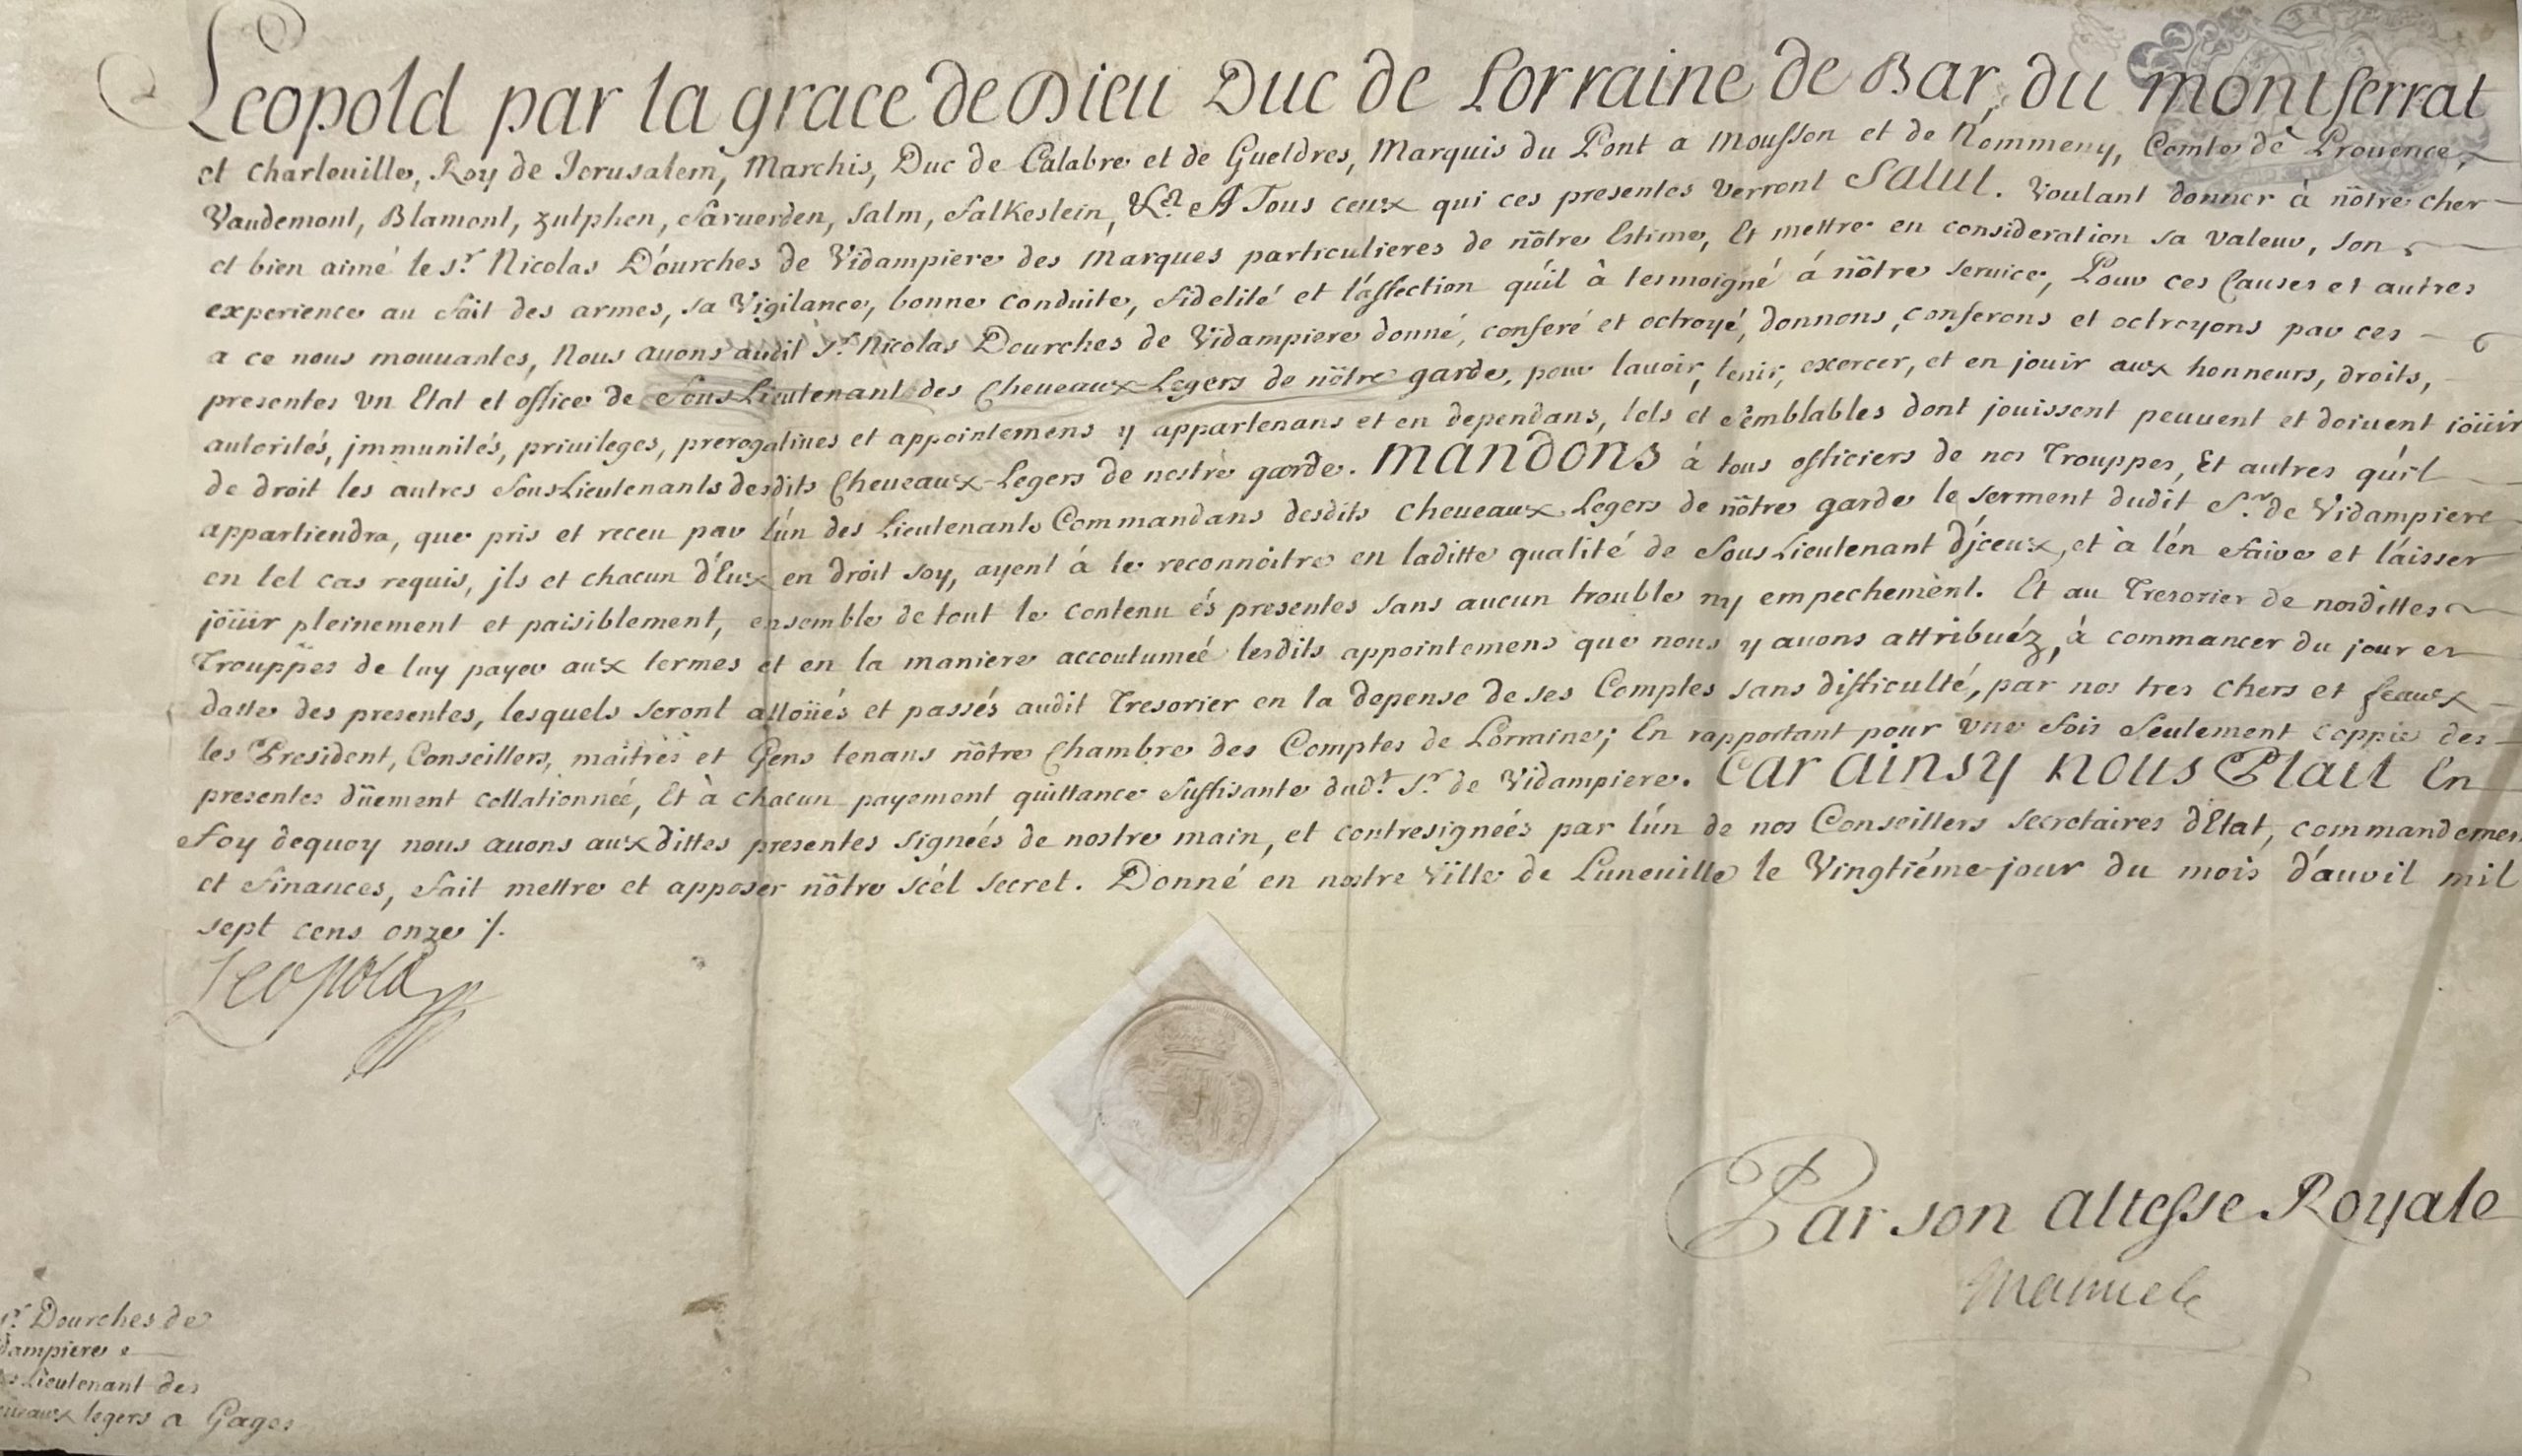 Leopold par la grace de Dieu Duc de Lorraine de Bar, du montferrat
et charleuille, Roy de Jerusalem, Marchis, Duc de Calabre et de Gueldres, Marquis du Pont a Mousson et de Nommeny, Comte de Prouence,
Vaudemont, Blamont, Zutphen, Saruerden, Salm, Falkestein, &c.ª A Tous ceux qui ces presentes verront Salut. Voulant donner à nôtre cher
et bien aimé le s.r Nicolas D'ourches de Vidampiere des marques particulieres de nôtre Estime, Et mettre en consideration sa valeur, son
experience au fait des armes, sa Vigilance, bonne conduite, fidelité et l'affection qu'il à tesmoigné á nôtre seruice, Pour ces Causes et autres
a ce nous mouuantes, Nous auons audit S.r Nicolas Dourches de Vidampiere donné, conferé et octroyé, donnons, conferons et octroyons par ces
presentes vn Etat et office de Sous Lieutenant des Cheueaux-Legers de nôtre garde, pour lauoir, tenir, exercer, et en jouir aux honneurs, droits,
autorités, jmmunités, priuileges, prerogatiues et appointemens y appartenans et en dependans, tels et semblables dont jouissent peuuent et doiuent joüir
de droit les autres Sous-Lieutenants desdits Cheueaux-Legers de nostre garde. Mandons à tous officiers de nos Trouppes, Et autres qu'il
appartiendra, que pris et receu par l'ún des Lieutenants Commandans desdits Cheueaux Legers de nôtre garde le serment dudit S.r de Vidampiere
en tel cas requis, jls et chacun d'Eux en droit soy, ayent á le reconnoitre en laditte qualité de Sous Lieutenant d'jceux, et à l'én faire et láisser
joüir pleinement et paisiblement, ensemble de tout le contenu és presentes sans aucun trouble ny empechement. Et au Tresorier de nosdittes
Trouppes de luy payer aux termes et en la maniere accoutumeé lesdits appointemens que nous y auons attribuéz, à commancer du jour et
datte des presentes, lesquels seront alloüés et passés audit Tresorier en la depense de ses Comptes sans difficulté, par nos tres chers et feaux
les President, Conseillers, maitres et Gens tenans nôtre Chambre des Comptes de Lorraine; En rapportant pour vne fois seulement coppie des
presentes düement collationneé, Et à chacun payement quittance suffisante dud.t S.r de Vidampiere. Car ainsy nous Plait En
foy dequoy nous auons aux dittes presentes signeés de nostre main, et contresigneés par l'ún de nos Conseillers secretaires d'Etat, commandemen
et finances, fait mettre et apposer nôtre scél secret. Donné en nostre Ville de Luneuille le Vingtiéme jour du mois d'auril mil
sept cens onze ⁒.
Leopold
Par son altesse Royale
s.r Dourches de
dampiere
Lieutenant des
ueaux legers a Gages